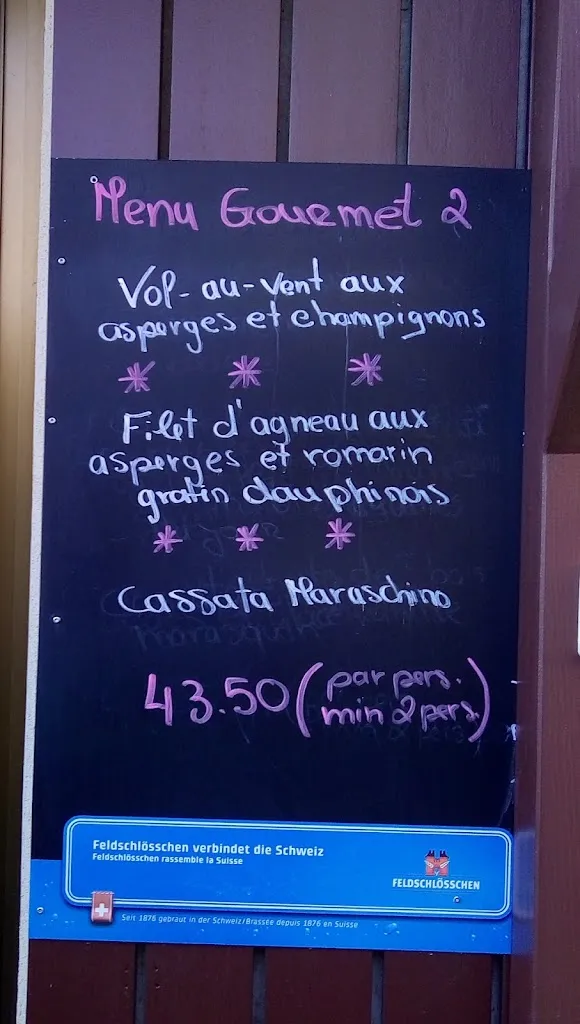 Menu Gouemet 2
Vol-au-vent aux
asperges et champignons
Filet d'agneau aux
asperges et romarin
gratin dauphinois
Cassata Maraschino
43.50 (par pers.
min 2 pers.)
Feldschlösschen verbindet die Schweiz
Feldschlösschen rassemble la Suisse
FELDSCHLÖSSCHEN
Seit 1876 gebraut in der Schweiz/Brassée depuis 1876 en Suisse